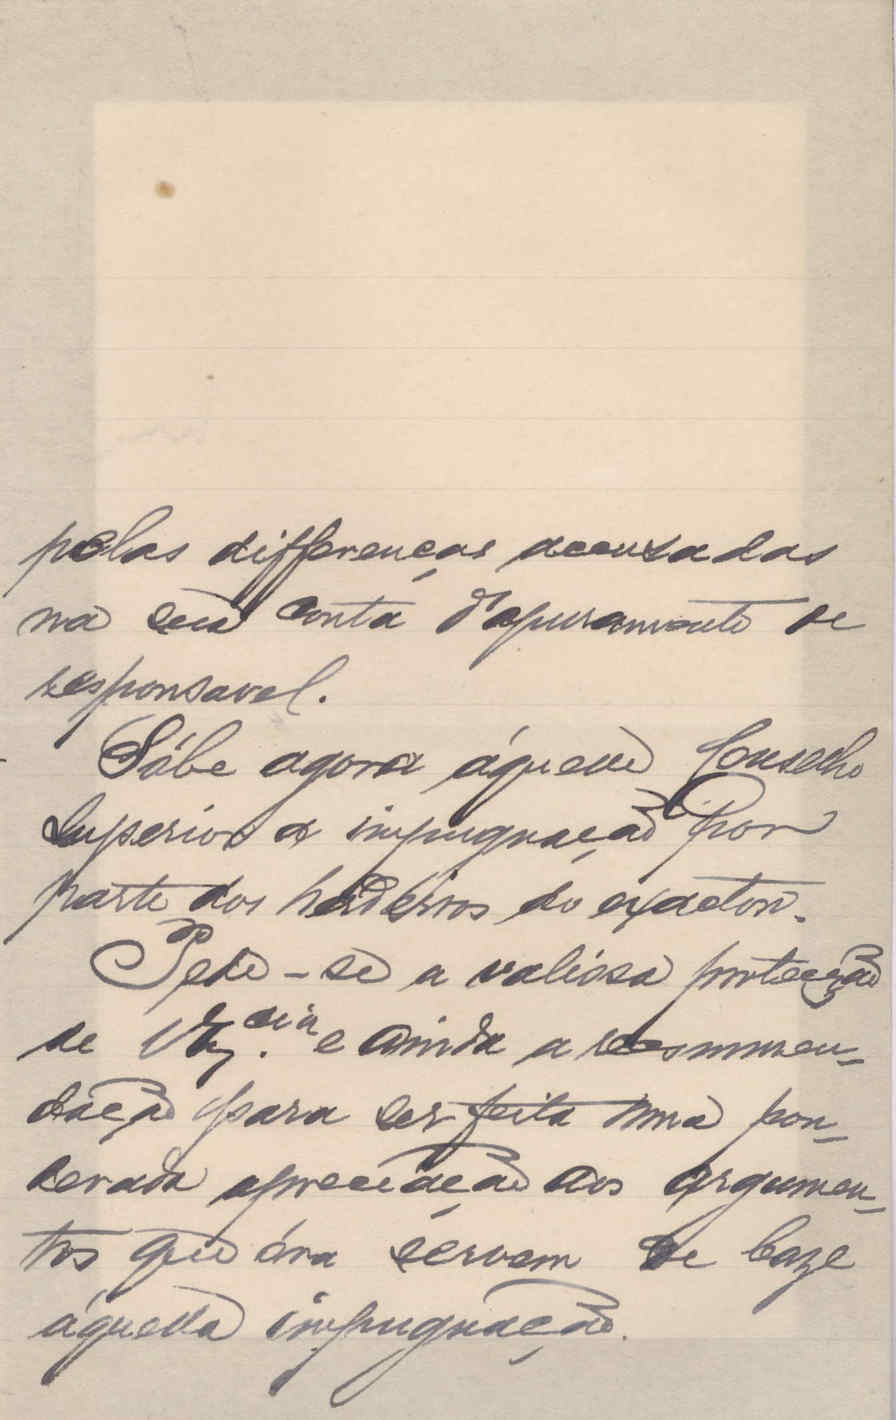 pelas differenças accusadas
na sua conta d'apuramento de
responsavel.
Sóbe agora áquelle Conselho
Superior a impugnação por
parte dos herdeiros do exactor.
Pede-se a valiosa protecção
de V. Ex.cia e ainda a recommen-
dação para ser feita uma pon-
derada apreciação aos argumen-
tos que óra servem de baze
áquella impugnação.